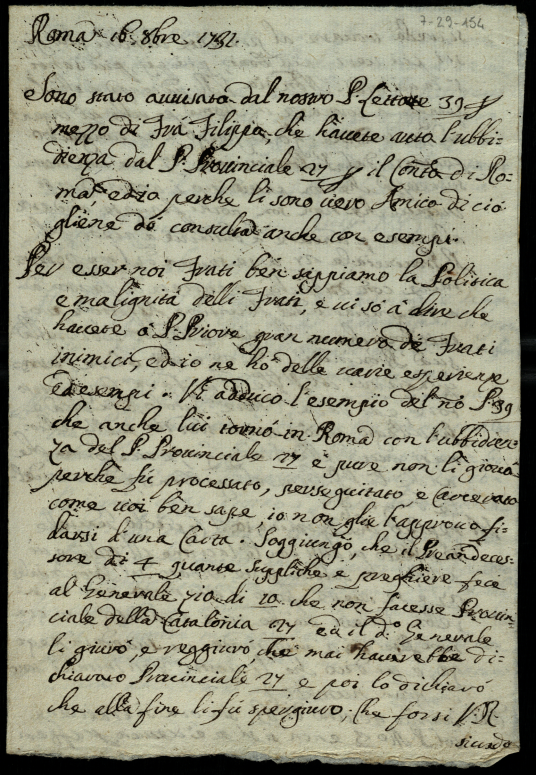 7-29-154
Roma 16. 8bre 1732.
Sono stato auuisato dal nostro P. Lettore 39 p
mezzo di Fra Filippo, che hauete auto l'ubbi-
dienza dal P. Prouinciale 27 p il Conto di Ro-
ma, ed io perche li sono vero Amico di cio
gliene dò consulta anche con esempi.
Per esser noi Frati ben sappiamo la Politica
e malignità delli Frati, e ui sò à dire che
hauete ò P. Priore gran numero de Frati
inimici, ed io ne ho delle uarie esperienze
ed esempi. Vi adduco l'esempio del nõ P. 39
che anche lui tornò in Roma con l'ubbidien
za del P. Prouinciale 27 e pure non li giouò
perche fu processato, perseguitato e Carcerato
come uoi ben sape, io non glie l'approuo fi-
darsi d'una Carta. Soggiungo, che il Preandeces-
sore di 4 quante suppliche e preghiere fece
al Generale zio di 10 che non facesse Prouin-
ciale della Catalonia 27 ed il dº Generale
li giurò, e reggiurò, che mai hauerebbe di-
chiarato Prouinciale 27 e poi lo dichiarò
che alla fine li fù spergiuro; Che forsi V. R.
sicuedo